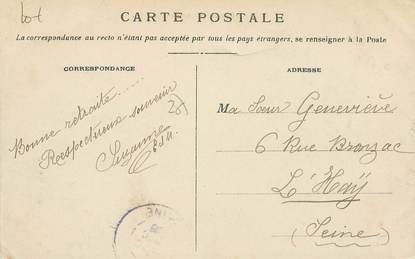 Lot
CARTE POSTALE
La correspondance au recto n'étant pas acceptée par tous les pays étrangers, se renseigner à la Poste
CORRESPONDANCE
Bonne retraite.....
Respectueux souvenir
Suzanne
E d M.
ADRESSE
Ma Soeur Geneviève
6 Rue Bronzac
L'Haÿ
(Seine)